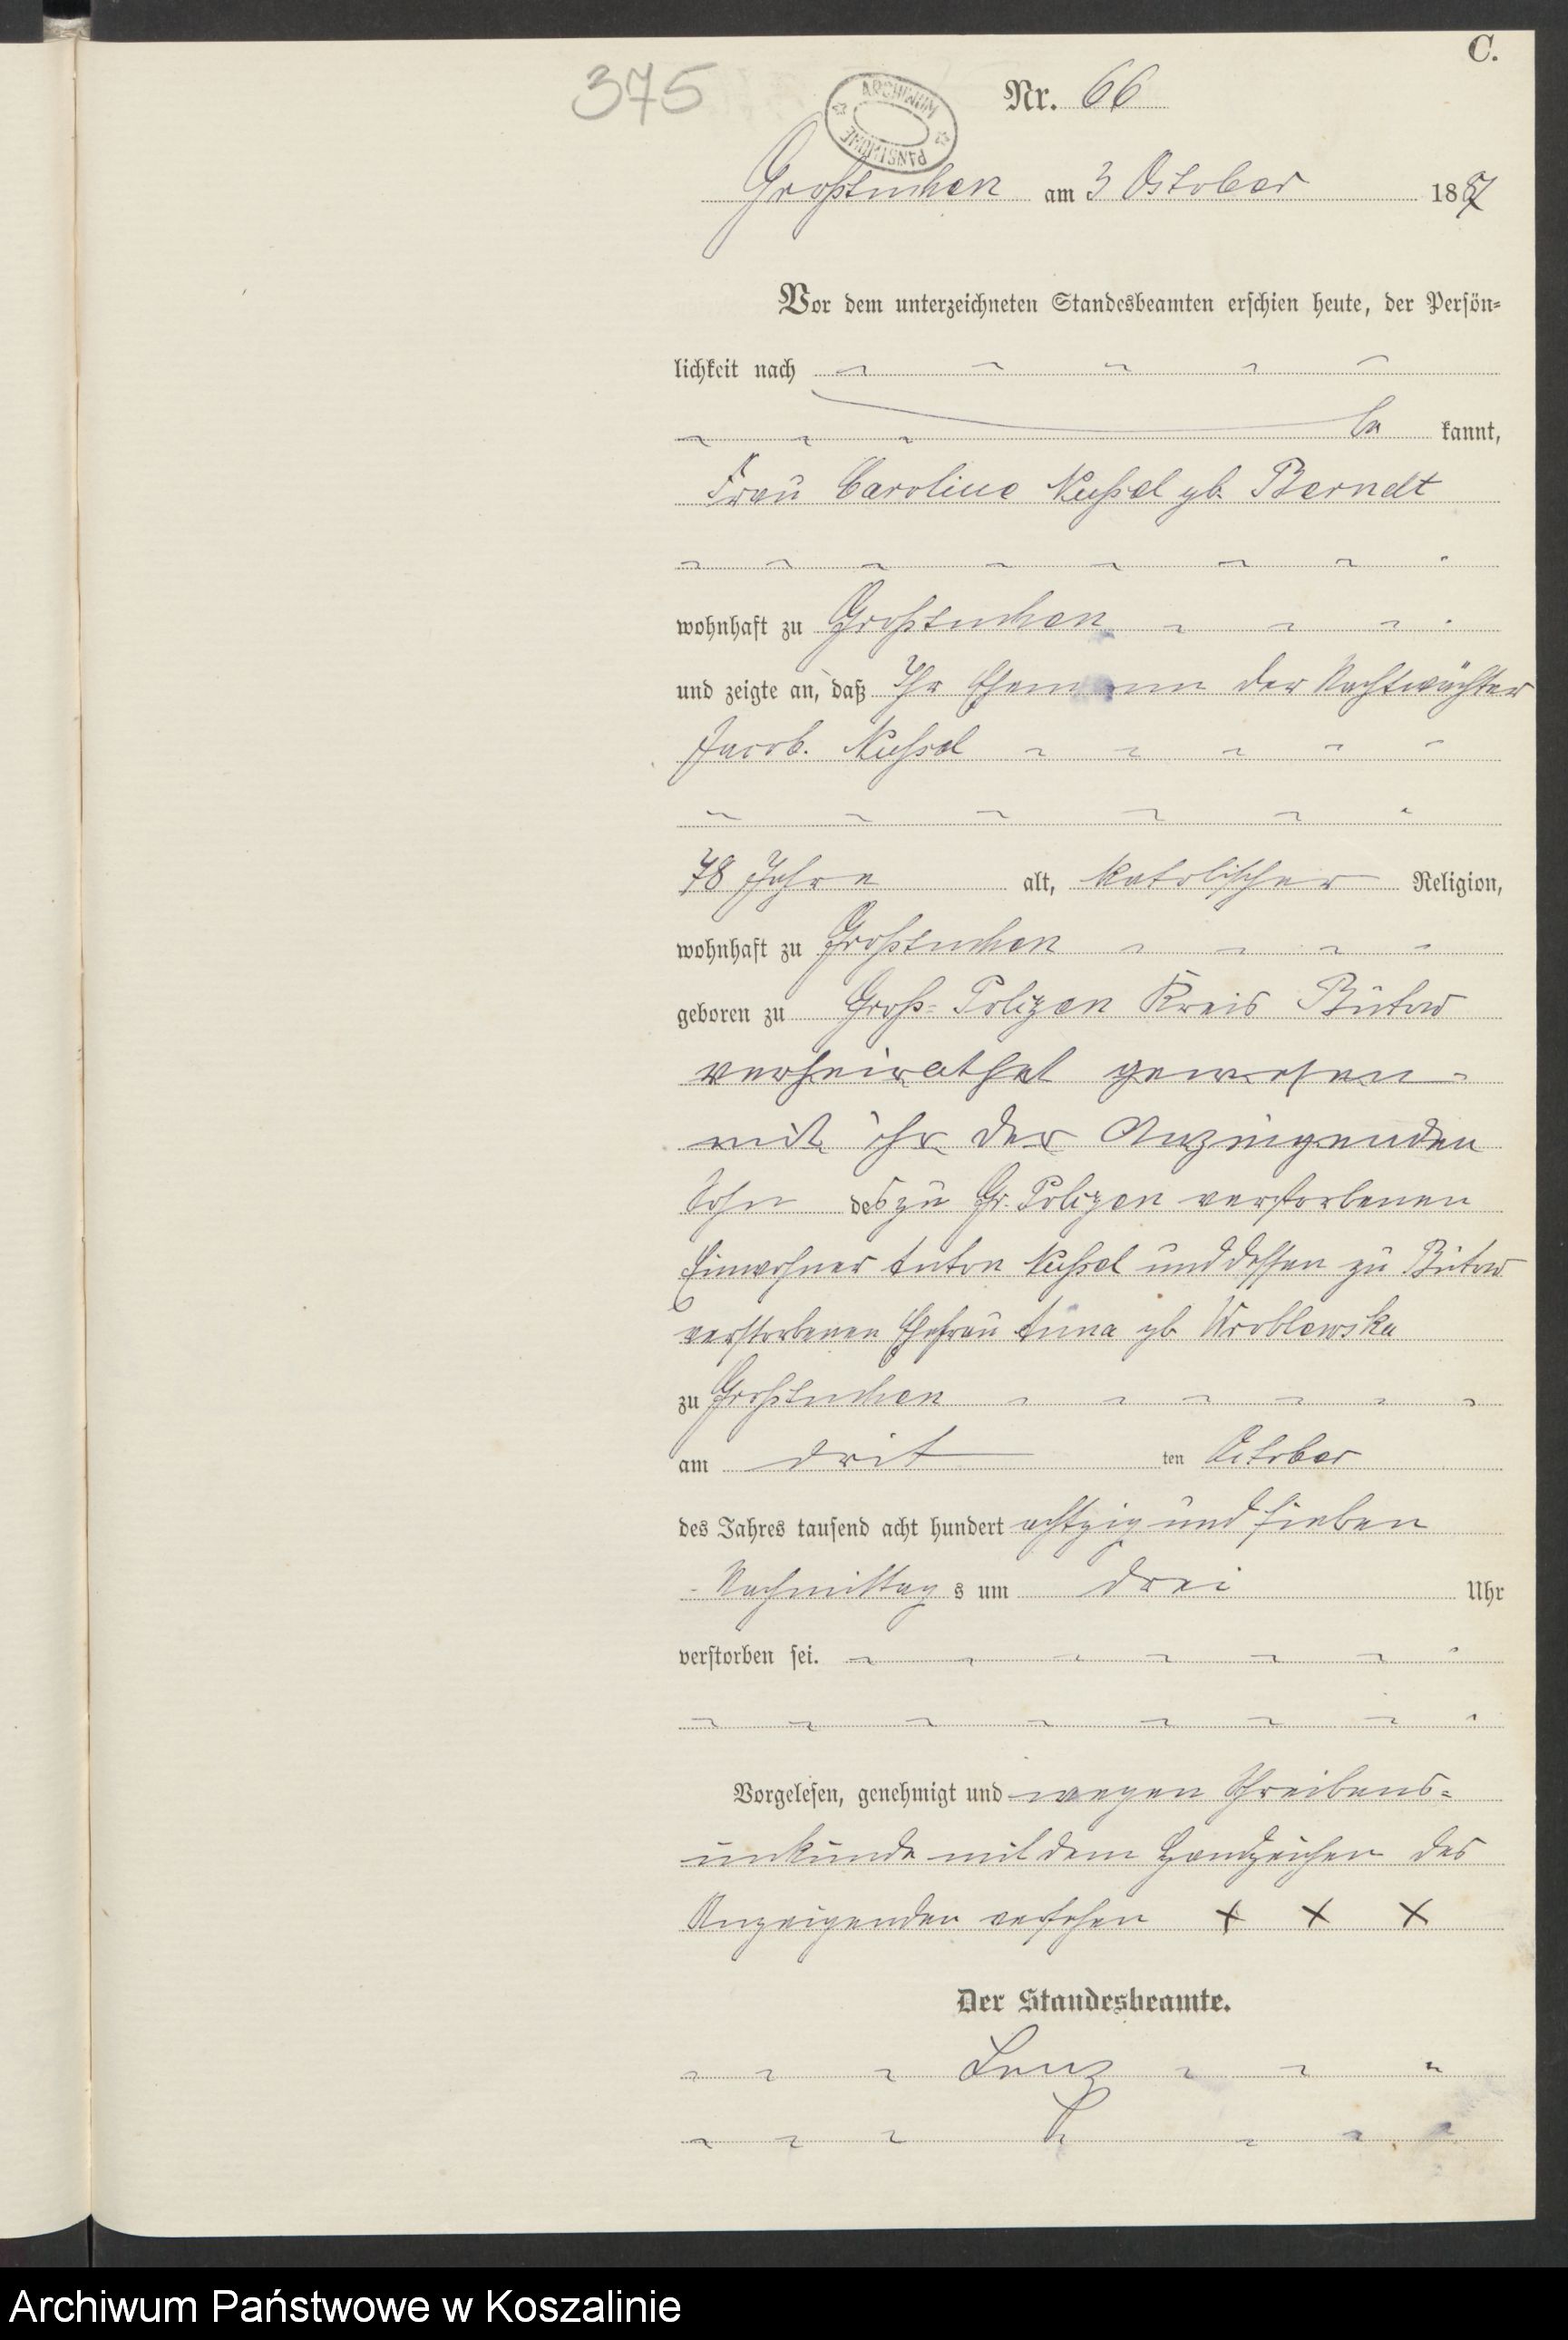 C.
375
ARCHIWUM PAŃSTWOWE
Nr. 66
Großtuchen am 3 October 1887
Vor dem unterzeichneten Standesbeamten erschien heute, der Persön-
lichkeit nach
be kannt,
Frau Caroline geb. Berndt
wohnhaft zu Großtuchen
und zeigte an, daß Ihr Ehemann der Nachtwächter
Jacob
78 Jahre alt, katolischer Religion,
wohnhaft zu Großtuchen
geboren zu Groß- Polczen Kreis Bütow
verheirathet gewesen
mit ihr der Anzeigenden
Sohn des zu Gr. Polczen verstorbenen
Einwohner Anton und dessen zu Bütow
verstorbenen Ehefrau Anna gb Wroblewska
zu Großtuchen
am drit ten October
des Jahres tausend acht hundert achtzig und sieben
Nachmittag s um drei Uhr
verstorben sei.
Vorgelesen, genehmigt und wegen Schreibens-
unkunde mit dem Handzeichen des
Anzeigenden versehen + + +
Der Standesbeamte.
Archiwum Państwowe w Koszalinie